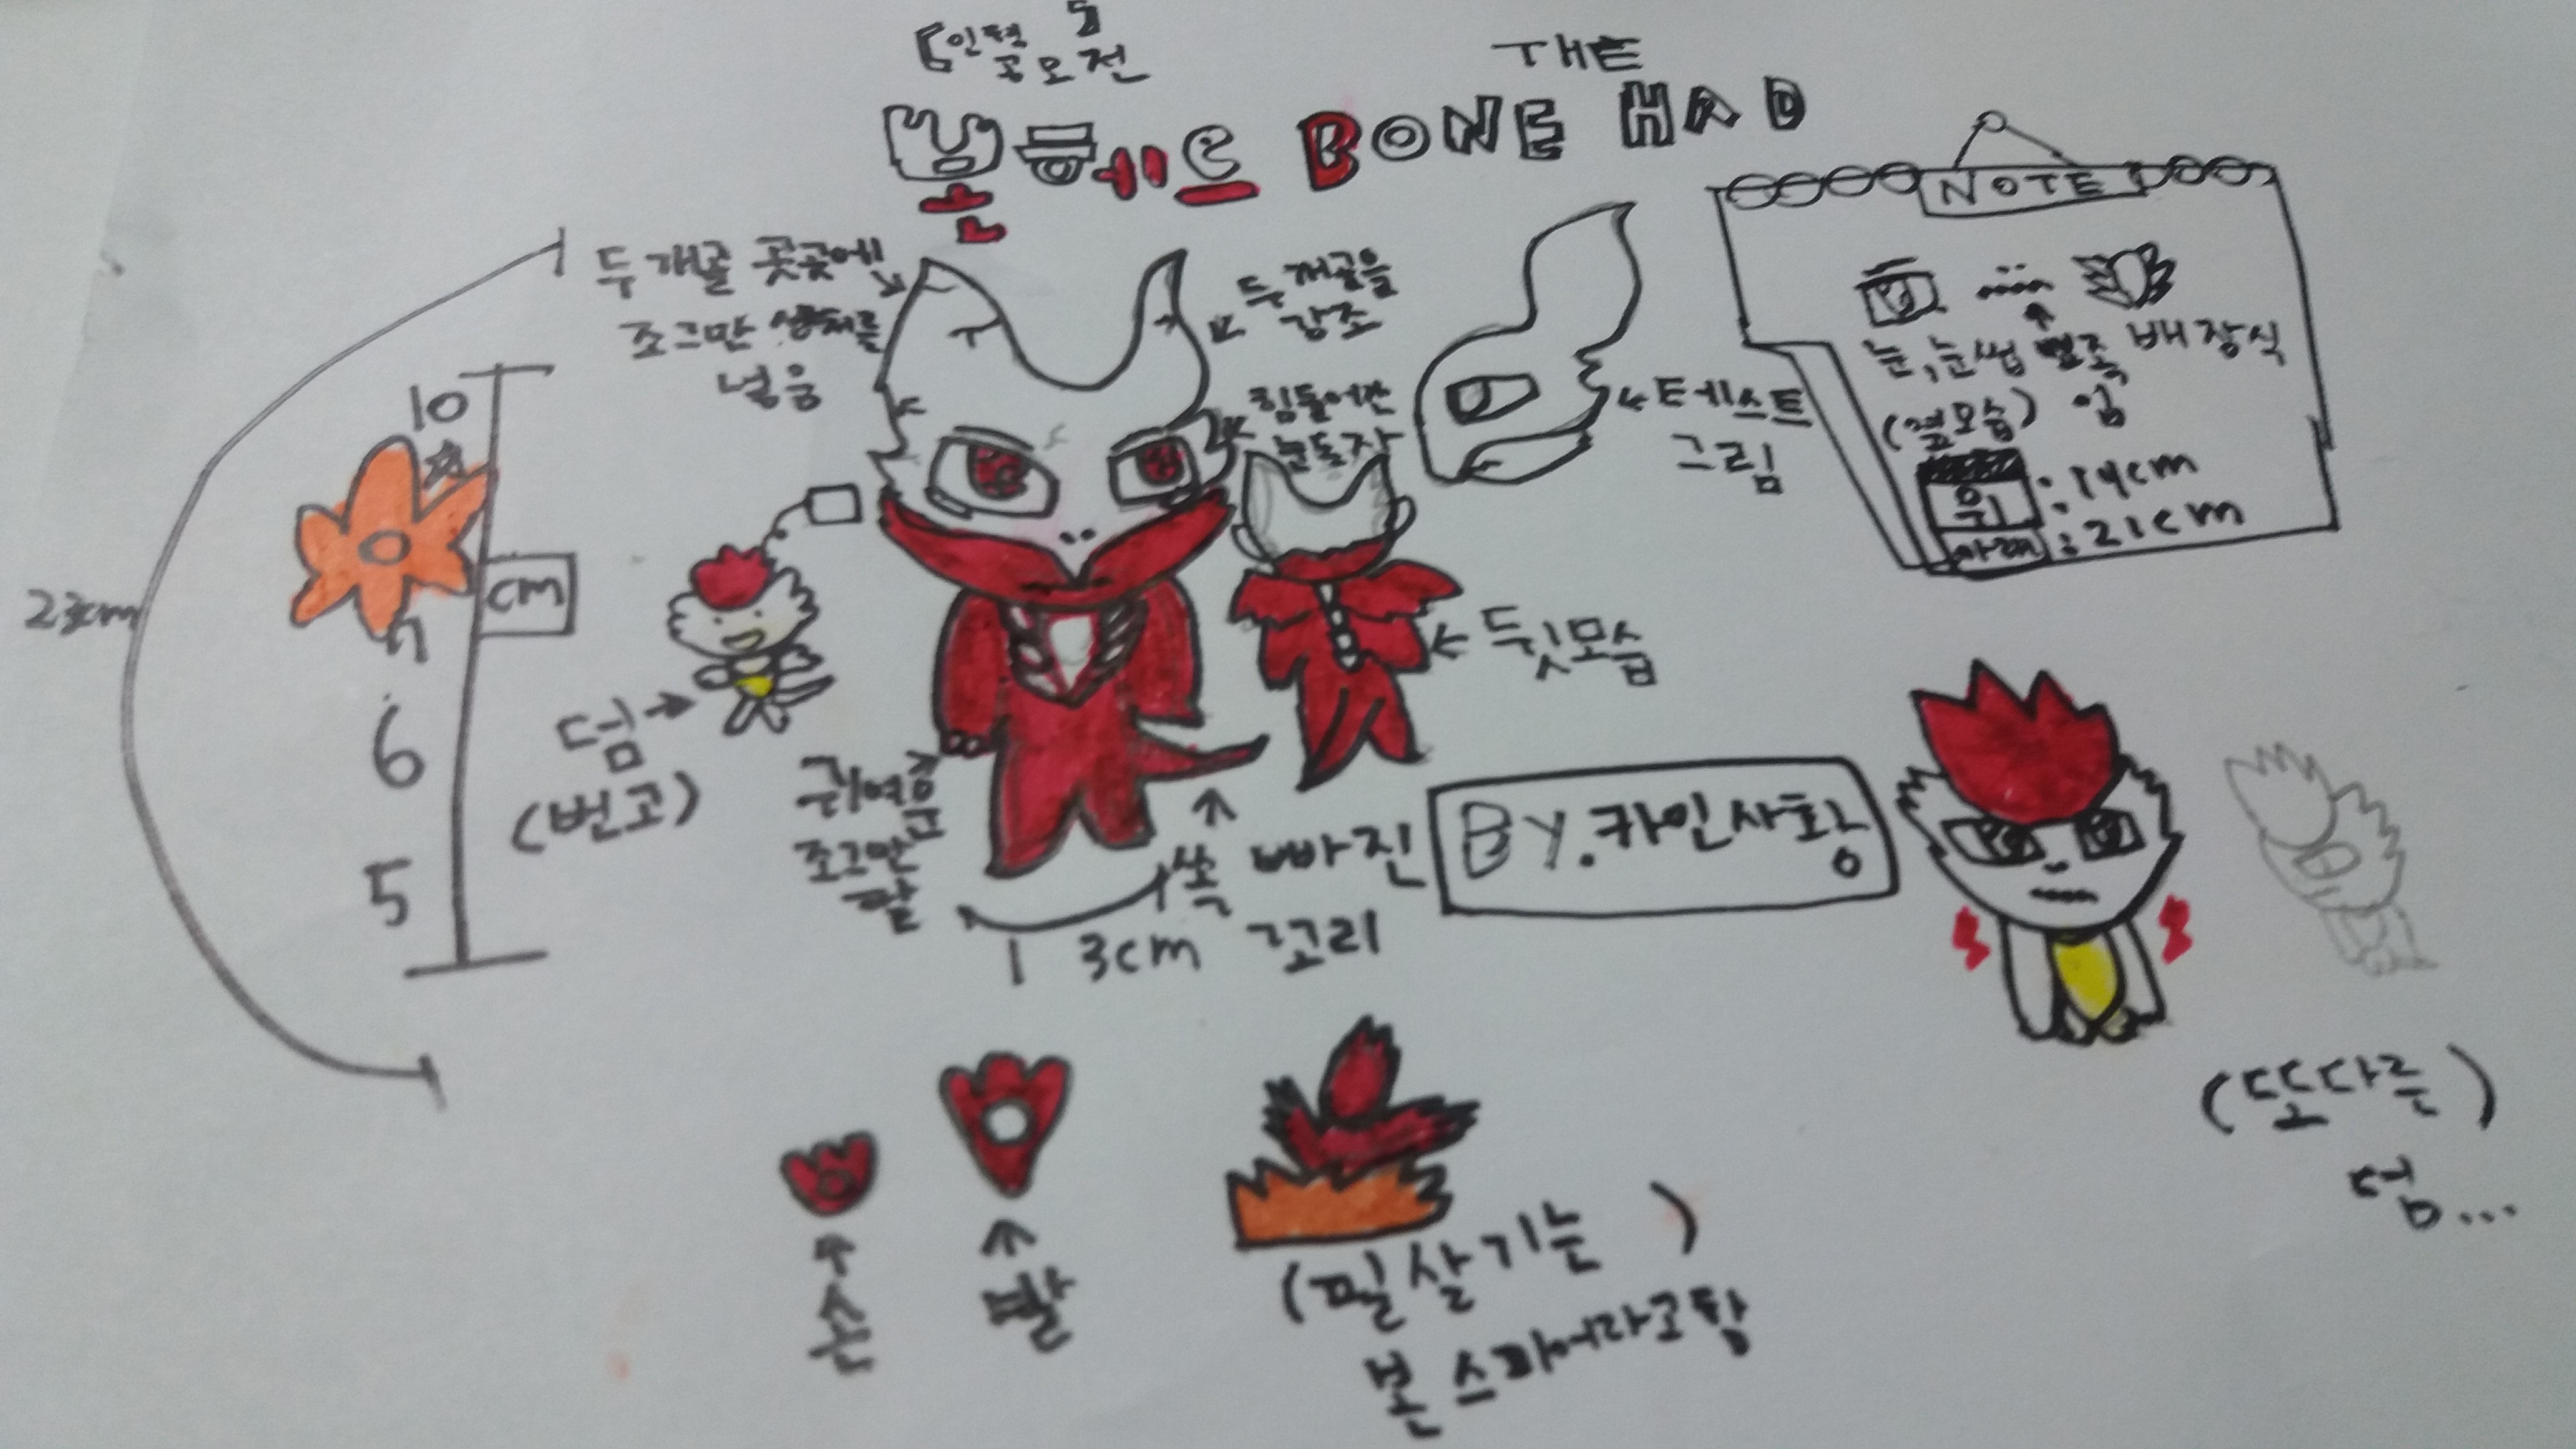 인형
공모전
THE
본헤드 BONE HAD
두개골 곳곳에
조그만 상처를
넣음
두개골을
강조
힘들어간
눈동자
←테스트
그림
NOTE
눈,눈썹 배장식
(옆모습) 임
위 : 14cm
아래 : 21cm
10
cm
6
5
23cm
덤→
(번고)
귀여운
조그만
팔
←뒷모습
쏙 빠진
꼬리
13cm
BY.카인사황
(또다른)
덤...
손
팔
(필살기는)
본 스파이어라고함